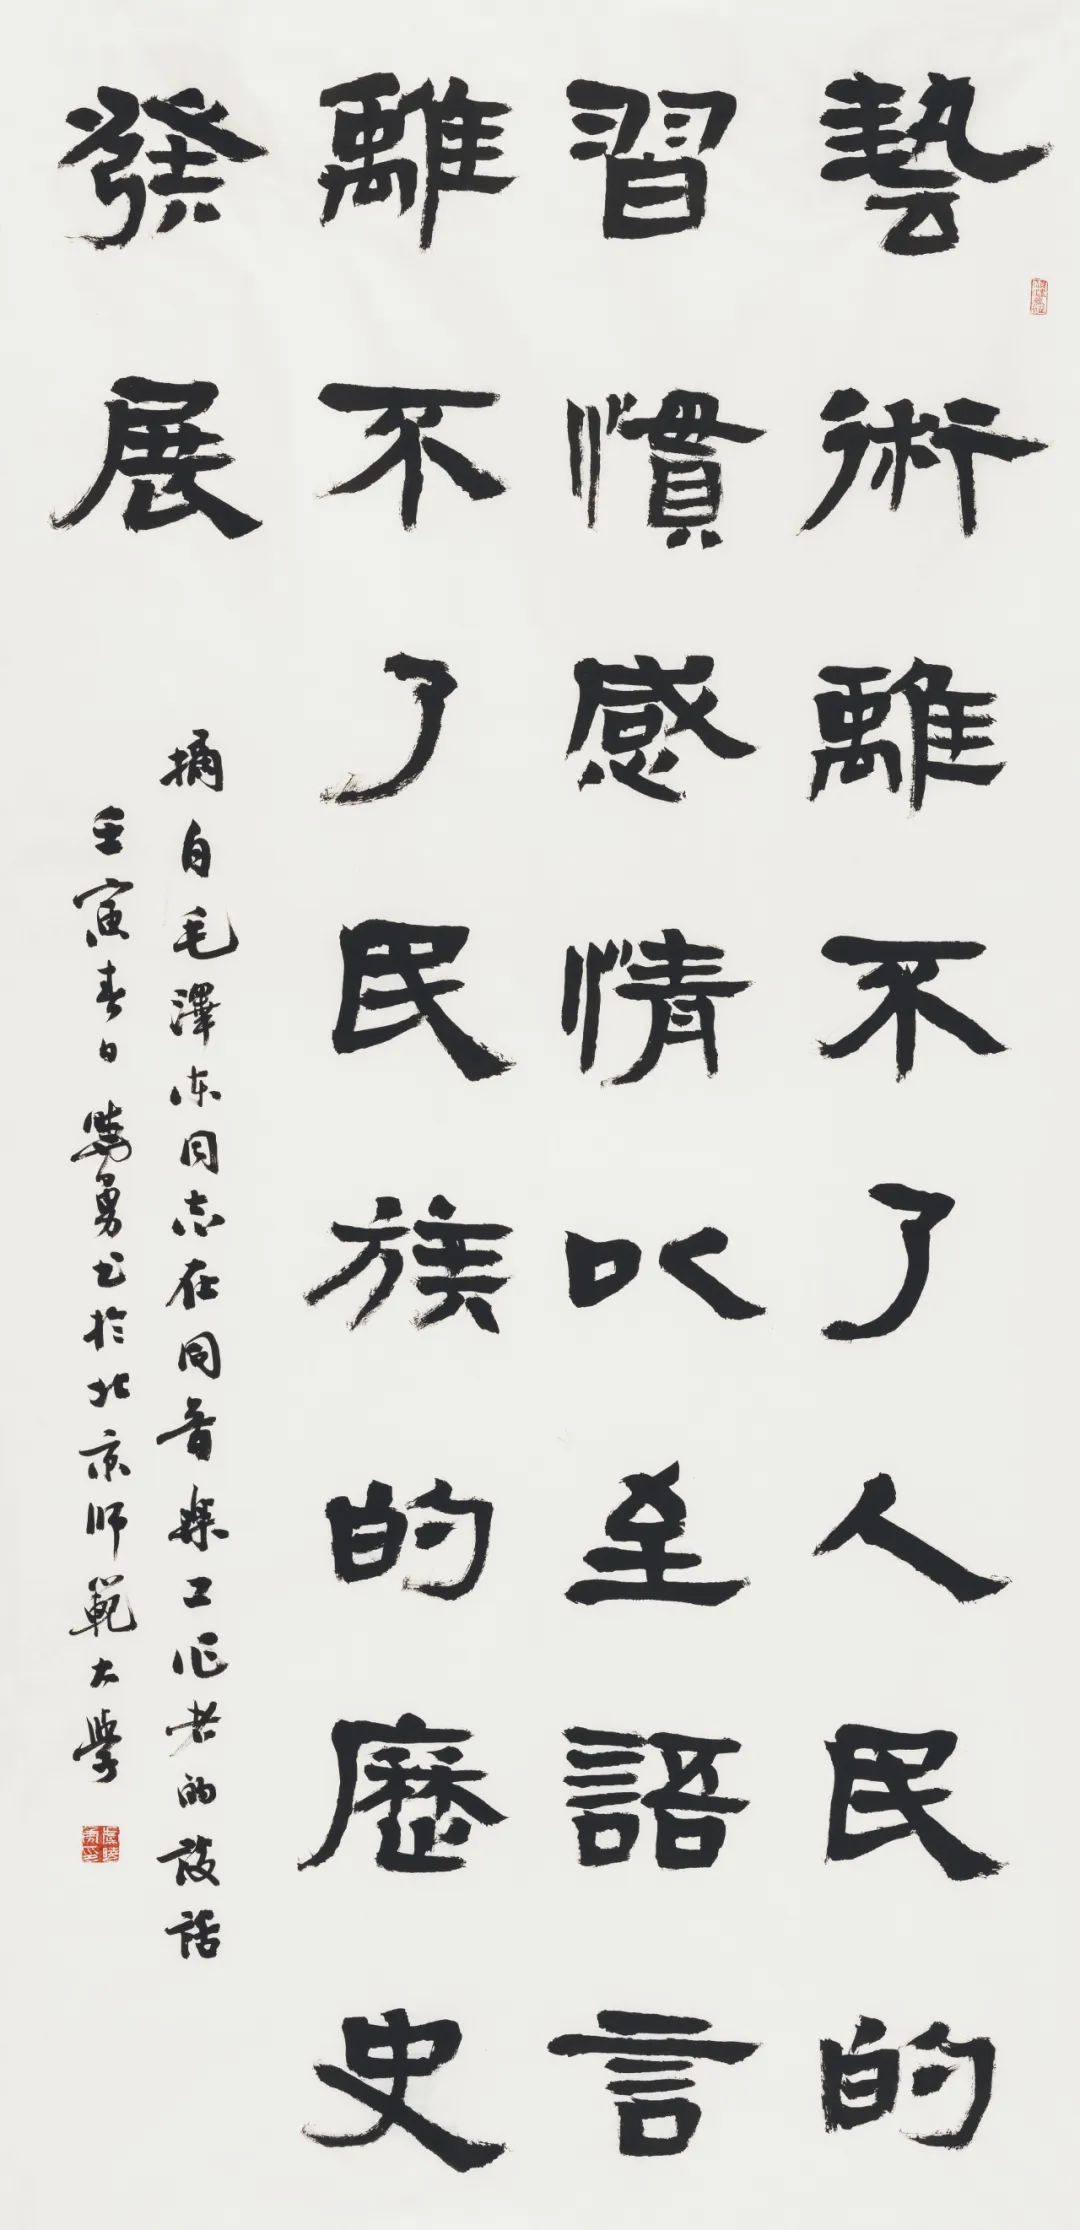 藝術離不了人民的
習慣感情以至語言
離不了民族的歷史
發展
摘自毛澤东同志在同音楽工作者的谈话
壬寅春日曉勇书於北京师範大學